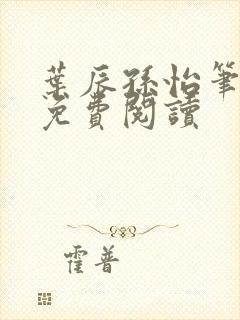 葉辰孫怡筆
免費閱讀
霍普